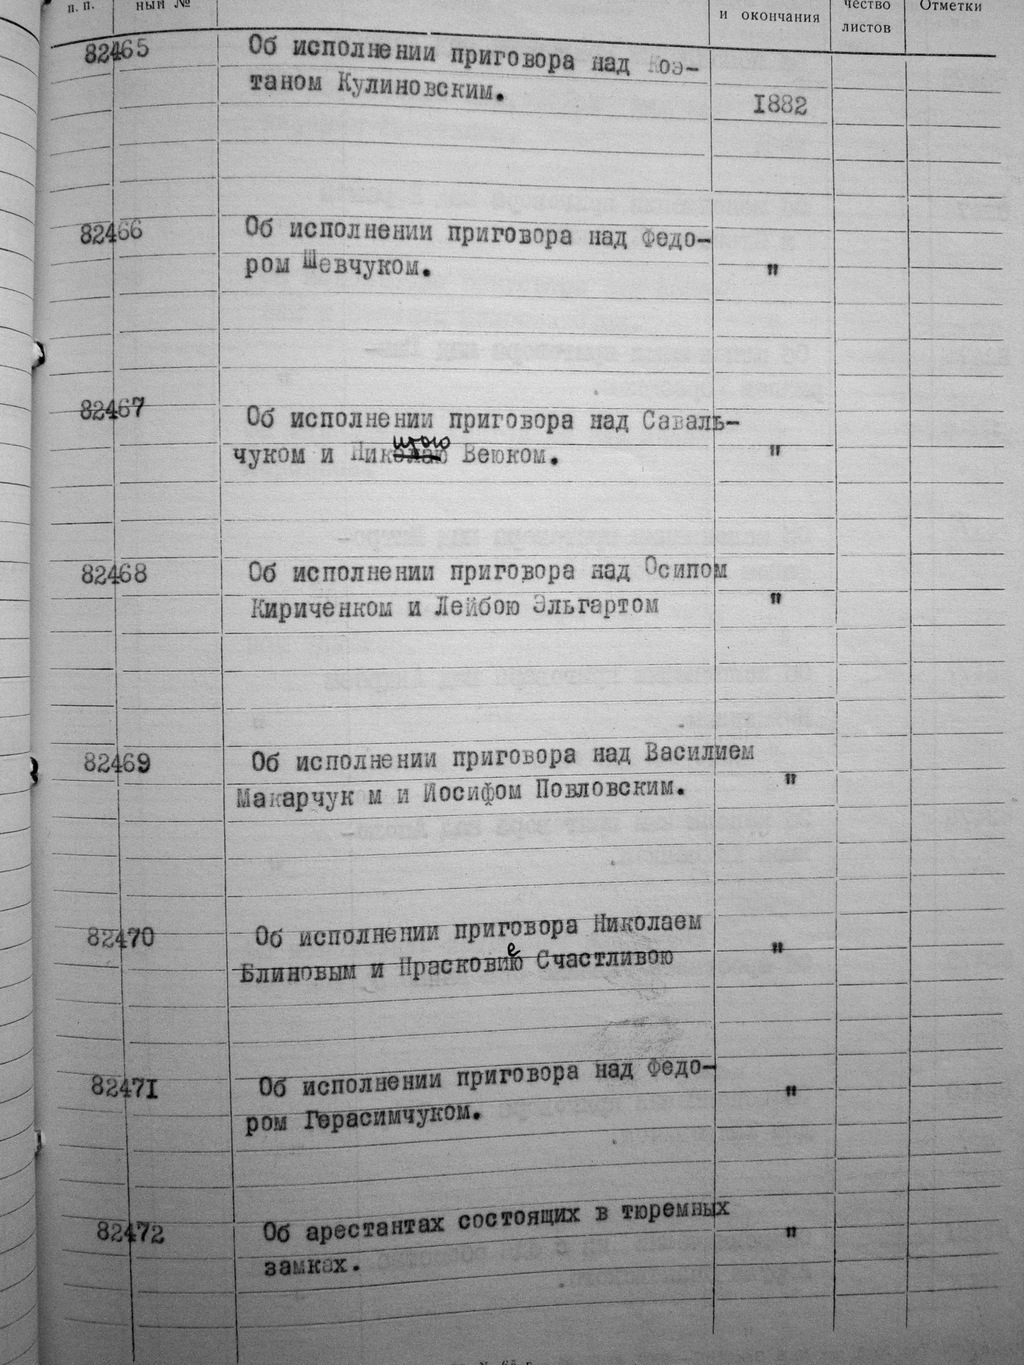 п. п.
ный №
и окончания
чество
листов
Отметки
82465
Об исполнении приговора над Коэ-
таном Кулиновским.
1882
82466
Об исполнении приговора над Федо-
ром Шевчуком.
"
82467
Об исполнении приговора над Саваль-
чуком и Никитою Веюком.
"
82468
Об исполнении приговора над Осипом
Кириченком и Лейбою Эльгартом
"
82469
Об исполнении приговора над Василием
Макарчук м и Иосифом Повловским.
"
82470
Об исполнении приговора Николаем
Блиновым и Прасковиею Счастливою
"
82471
Об исполнении приговора над Федо-
ром Герасимчуком.
"
82472
Об арестантах состоящих в тюремных
замках.
"